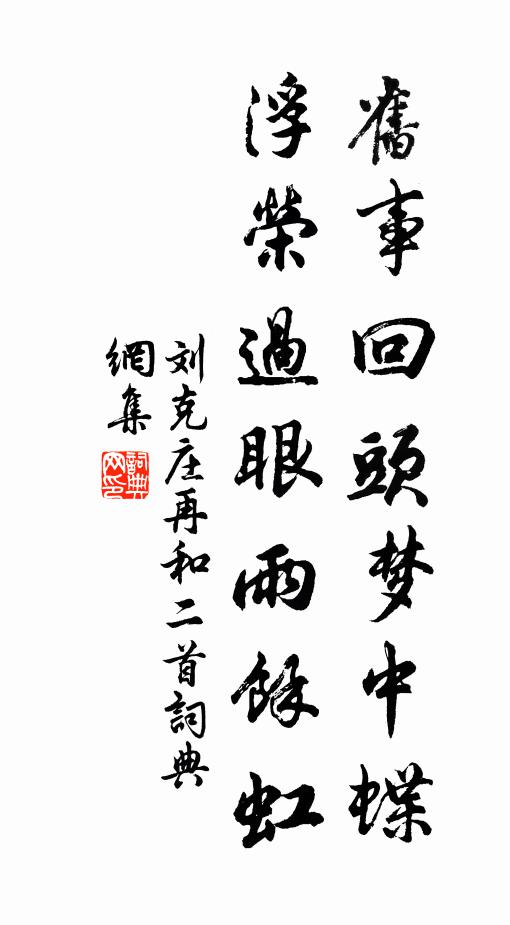 舊事回頭梦中蝶
浮榮過眼雨餘虹
刘克庄再和二首詞典
網集